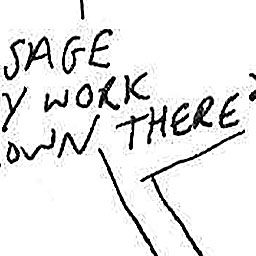 SAGE
Y WORK
OWN THERE?